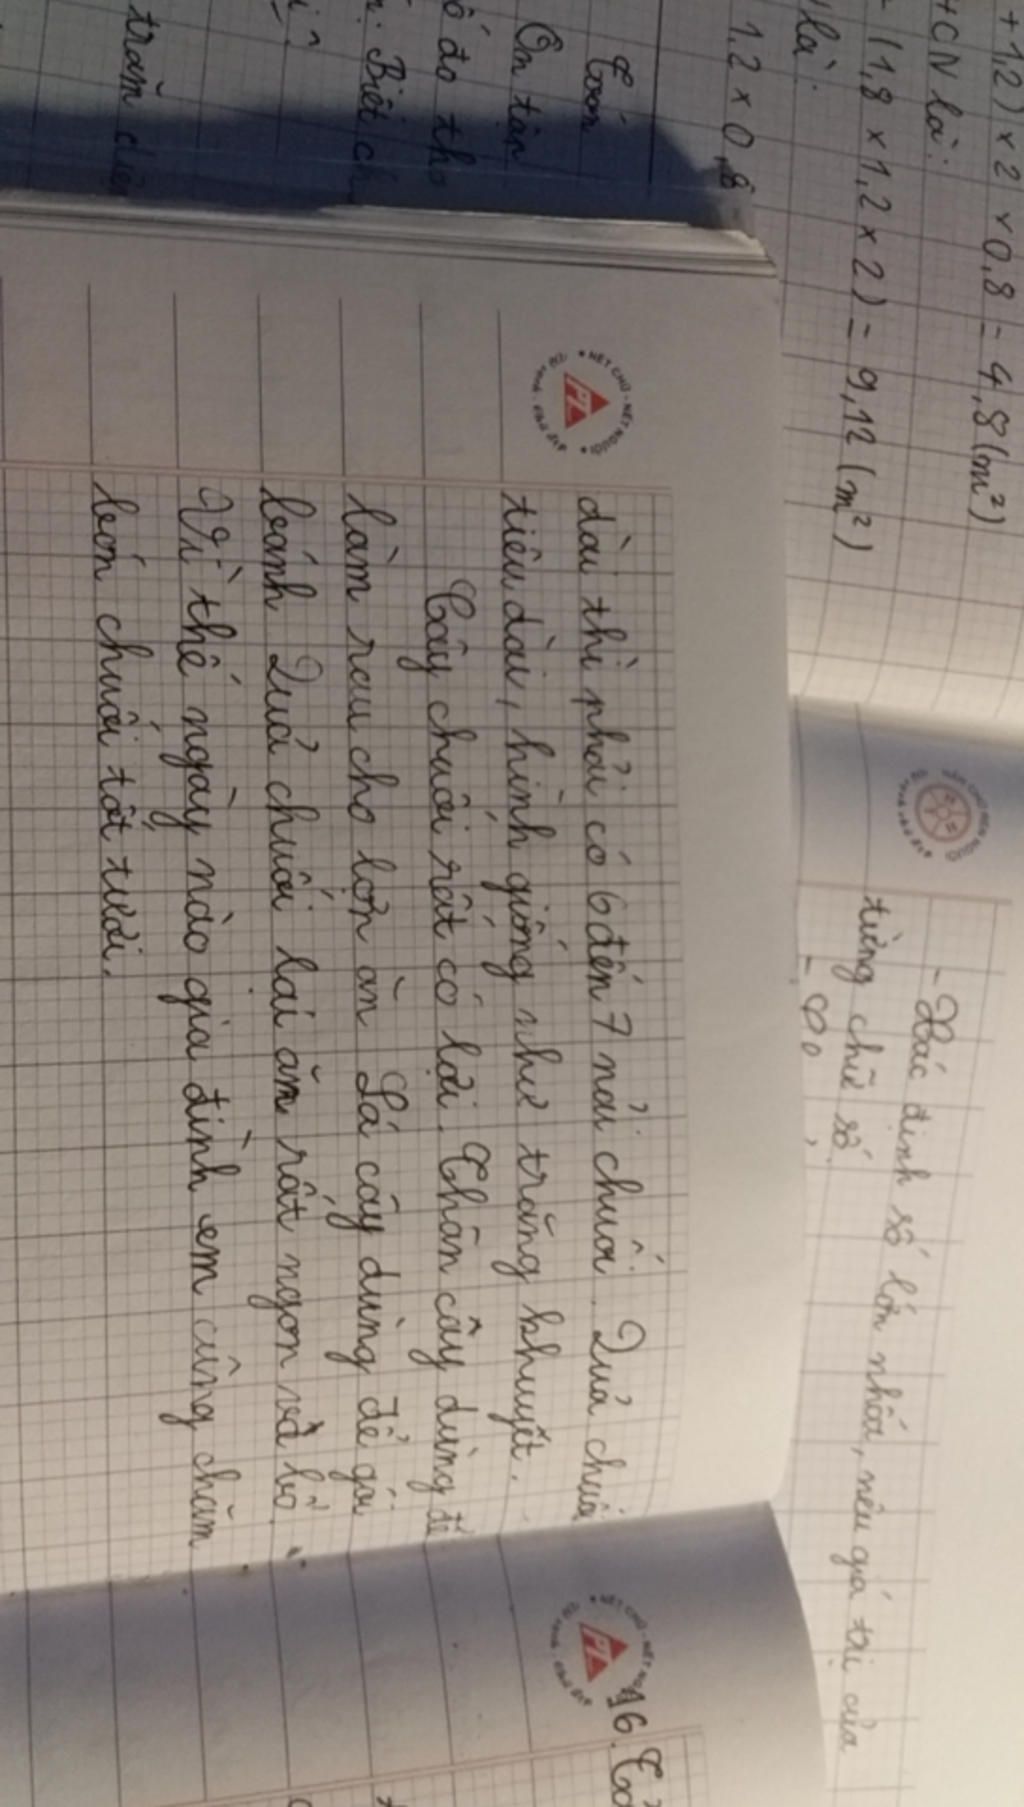 +1,2) × 2 × 0,8 = 4,8 (m²)
HCN là:
(1,8 × 1,2 × 2) = 9,12 (m²)
là:
1,2 × 0,8
Toán
Ôn tập
ố đo
Biết
trăm
NÉT CHỮ - NÉT NGƯỜI
PL
dài thì phải có 6 đến 7 nải chuối. Quả chuối
tiêu dài, hình giống như trăng khuyết.
Cây chuối rất có lợi. Thân cây dùng để
làm rau cho lợn ăn Lá cây dùng để gói
bánh Quả chuối lại ăn rất ngon và bổ.
Vì thế ngày nào gia đình em cũng chăm
bón chuối tốt tươi.
- Xác định số lớn nhất, nêu giá trị của
từng chữ số
NÉT CHỮ - NÉT
PL
16.